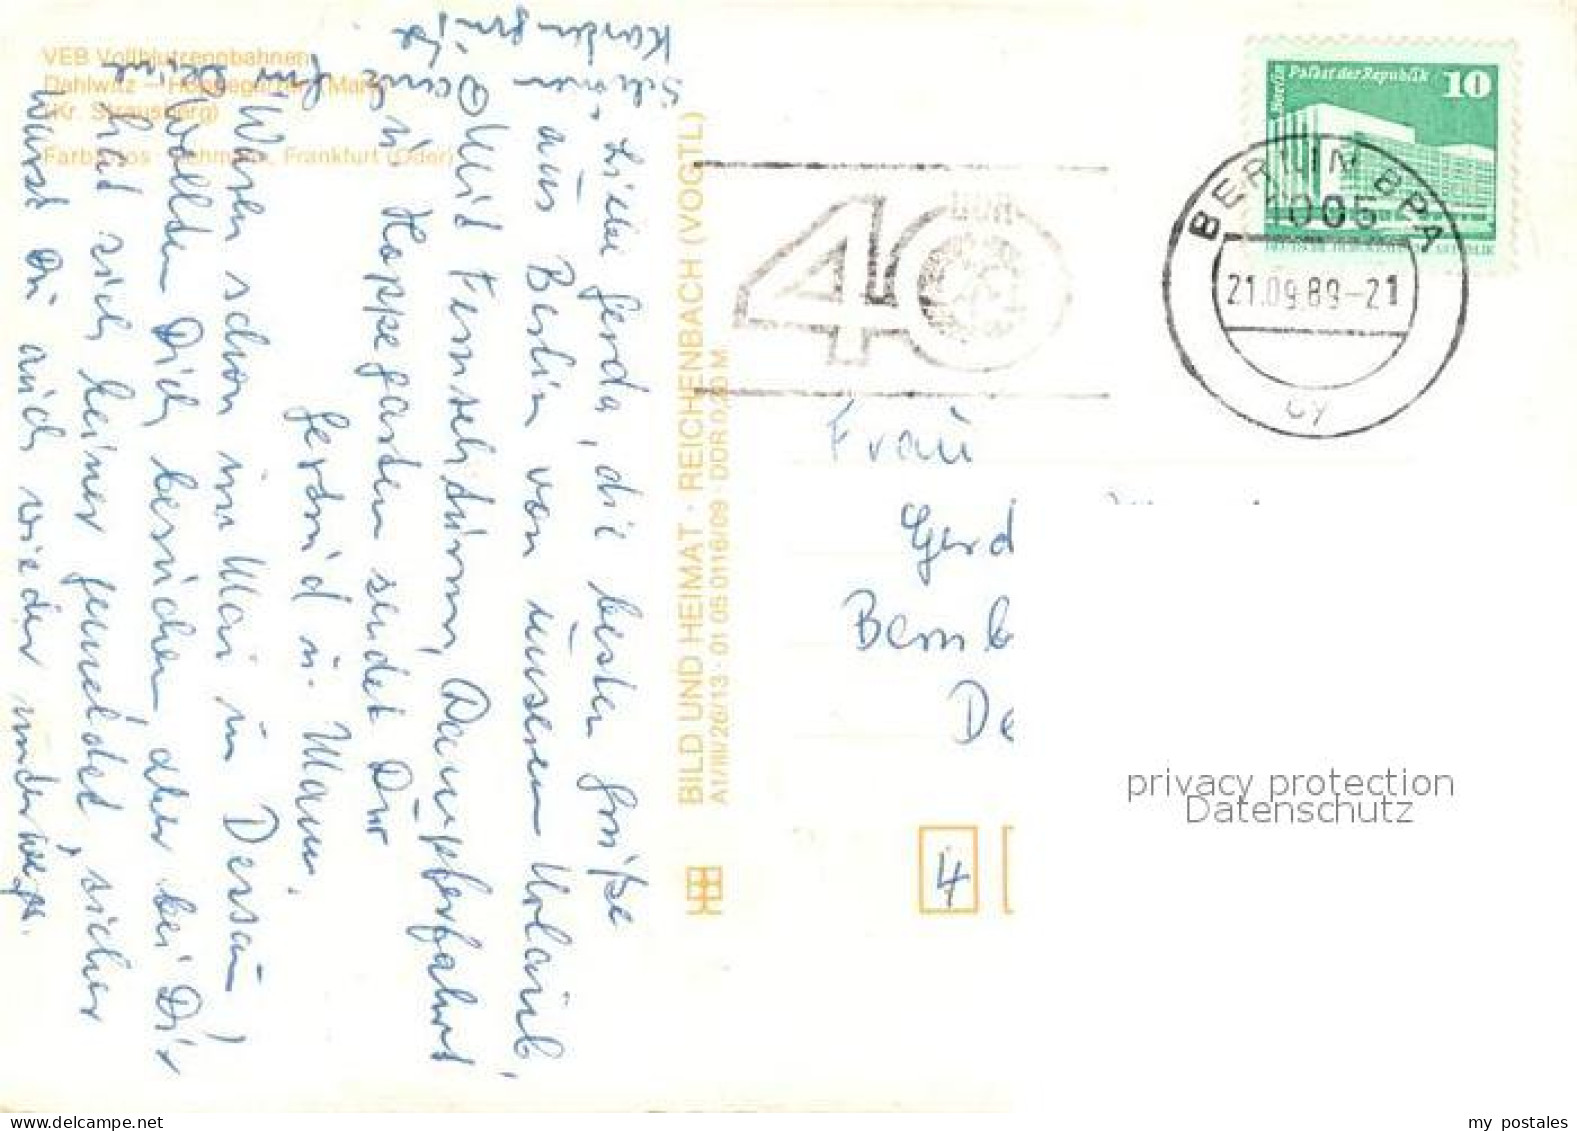 VEB Vollblutrennbahnen
Dahlwitz – Hoppegarten (Mark)
(Kr. Strausberg)
Farbfotos: Lehmann, Frankfurt (Oder)
Liebe Gerda, die besten Grüße
aus Berlin von unserem Urlaub,
Mit Fernsehturm, Dampferfahrt
u. Hoppegarten sendet Dir
Gertrud u. Mann.
Waren schon im Mai in Dessau,
Wollten Dich besuchen, aber bei Dir
hat sich keiner gemeldet, sicher
warst Du auch wieder unterwegs.
Schönen Dank für Deine
Kartengrüße
BILD UND HEIMAT · REICHENBACH (VOGTL)
A1/III/26/13 · 01 05 0116/09 · DDR 0,20 M
DDR
40
Berlin Palast der Republik 10
BERLIN BPA
1005
21.09.89-21
by
Frau
Gerd
Bernb
De
4
privacy protection
Datenschutz
my postales